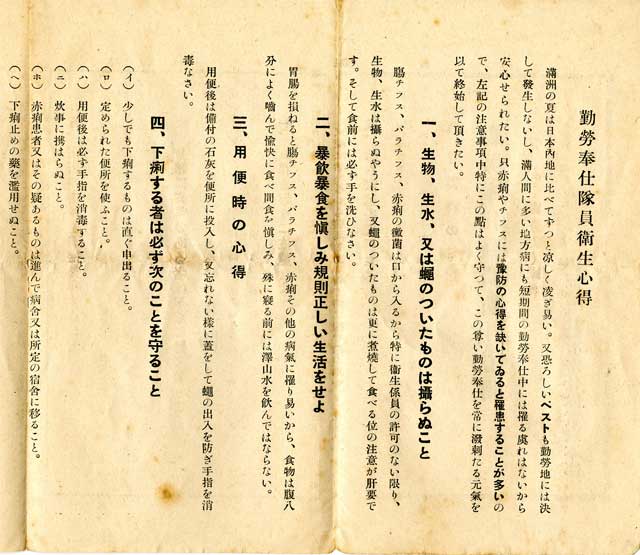 勤勞奉仕隊員衛生心得
滿洲の夏は日本內地に比べてずつと涼しく凌ぎ易い。又恐ろしいペストも勤勞地には決
して發生しないし、滿人間に多い地方病にも短期間の勤勞奉仕中には罹る虞れはないから
安心せられたい。只赤痢やチフスには豫防の心得を缺いてゐると罹患することが多いの
で、左記の注意事項中特にこの點はよく守つて、この尊い勤勞奉仕を常に潑剌たる元氣を
以て終始して頂きたい。
一、生物、生水、又は蠅のついたものは攝らぬこと
膓チフス、パラチフス、赤痢の黴菌は口から入るから特に衞生係員の許可のない限り、
生物、生水は攝らぬやうにし、又蠅のついたものは更に煮燒して食べる位の注意が肝要で
す。そして食前には必ず手を洗ひなさい。
二、暴飮暴食を愼しみ規則正しい生活をせよ
胃腸を損ねると膓チフス、パラチフス、赤痢その他の病氣に罹り易いから、食物は腹八
分によく嚙んで愉快に食べ間食を愼しみ、殊に寢る前には澤山水を飮んではならない。
三、用便時の心得
用便後は備付の石灰を便所に投入し、又忘れない樣に蓋をして蠅の出入を防ぎ手指を消
毒なさい。
四、下痢する者は必ず次のことを守ること
(イ) 少しでも下痢するものは直ぐ申出ること。
(ロ) 定められた便所を使ふこと。
(ハ) 用便後は必ず手指を消毒すること。
(ニ) 炊事に携はらぬこと。
(ホ) 赤痢患者又はその疑あるものは進んで病舍又は所定の宿舍に移ること。
(ヘ) 下痢止めの藥を濫用せぬこと。